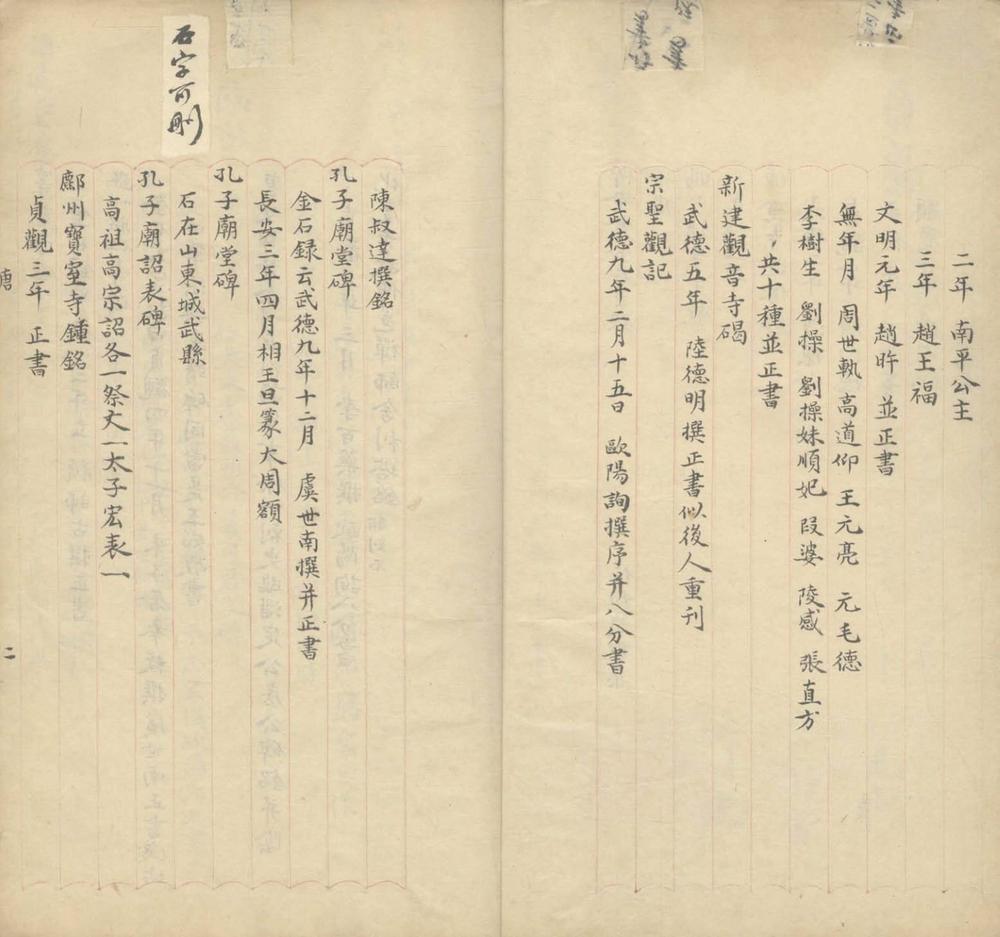 二年 南平公主
三年 趙王福
文明元年 趙昨 並正書
無年月 周世執 高道仰 王元亮 元毛德
李樹生 劉操 劉操妹順妃 段婆 陵感 張直方
共十種並正書
新建觀音寺碣
武德五年 陸德明撰正書似後人重刊
宗聖觀記
武德九年二月十五日 歐陽詢撰序并八分書
陳叔達撰銘
孔子廟堂碑
金石録云武德九年十二月 虞世南撰并正書
長安三年四月相王旦篆大周額
孔子廟堂碑
石在山東城武縣
孔子廟詔表碑
高祖高宗詔各一祭文一太子宏表一
鄜州寶室寺鍾銘
貞觀三年 正書
石字可刪
唐
二